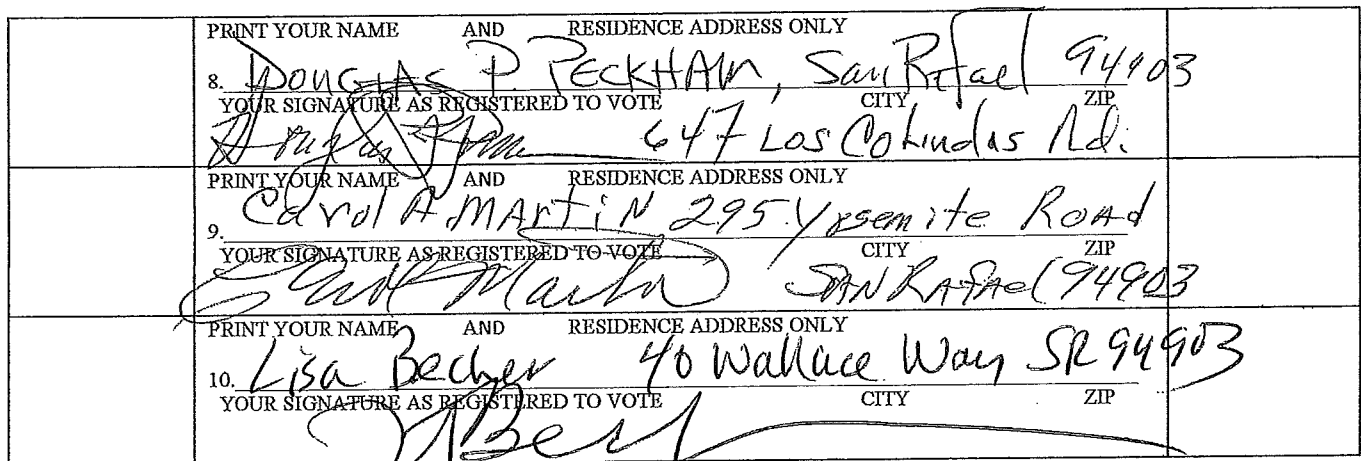 PRINT YOUR NAME AND RESIDENCE ADDRESS ONLY
8. Douglas P. PECKHAM, San Rafael 94903
YOUR SIGNATURE AS REGISTERED TO VOTE CITY ZIP
647 Los Colindas Rd.
PRINT YOUR NAME AND RESIDENCE ADDRESS ONLY
9. Carol A MArtiN 295 Yosemite ROAd
YOUR SIGNATURE AS REGISTERED TO VOTE CITY ZIP
Carol Martin SAN RAfAel 94903
PRINT YOUR NAME AND RESIDENCE ADDRESS ONLY
10. Lisa Becher 40 Wallace Way SR 94903
YOUR SIGNATURE AS REGISTERED TO VOTE CITY ZIP